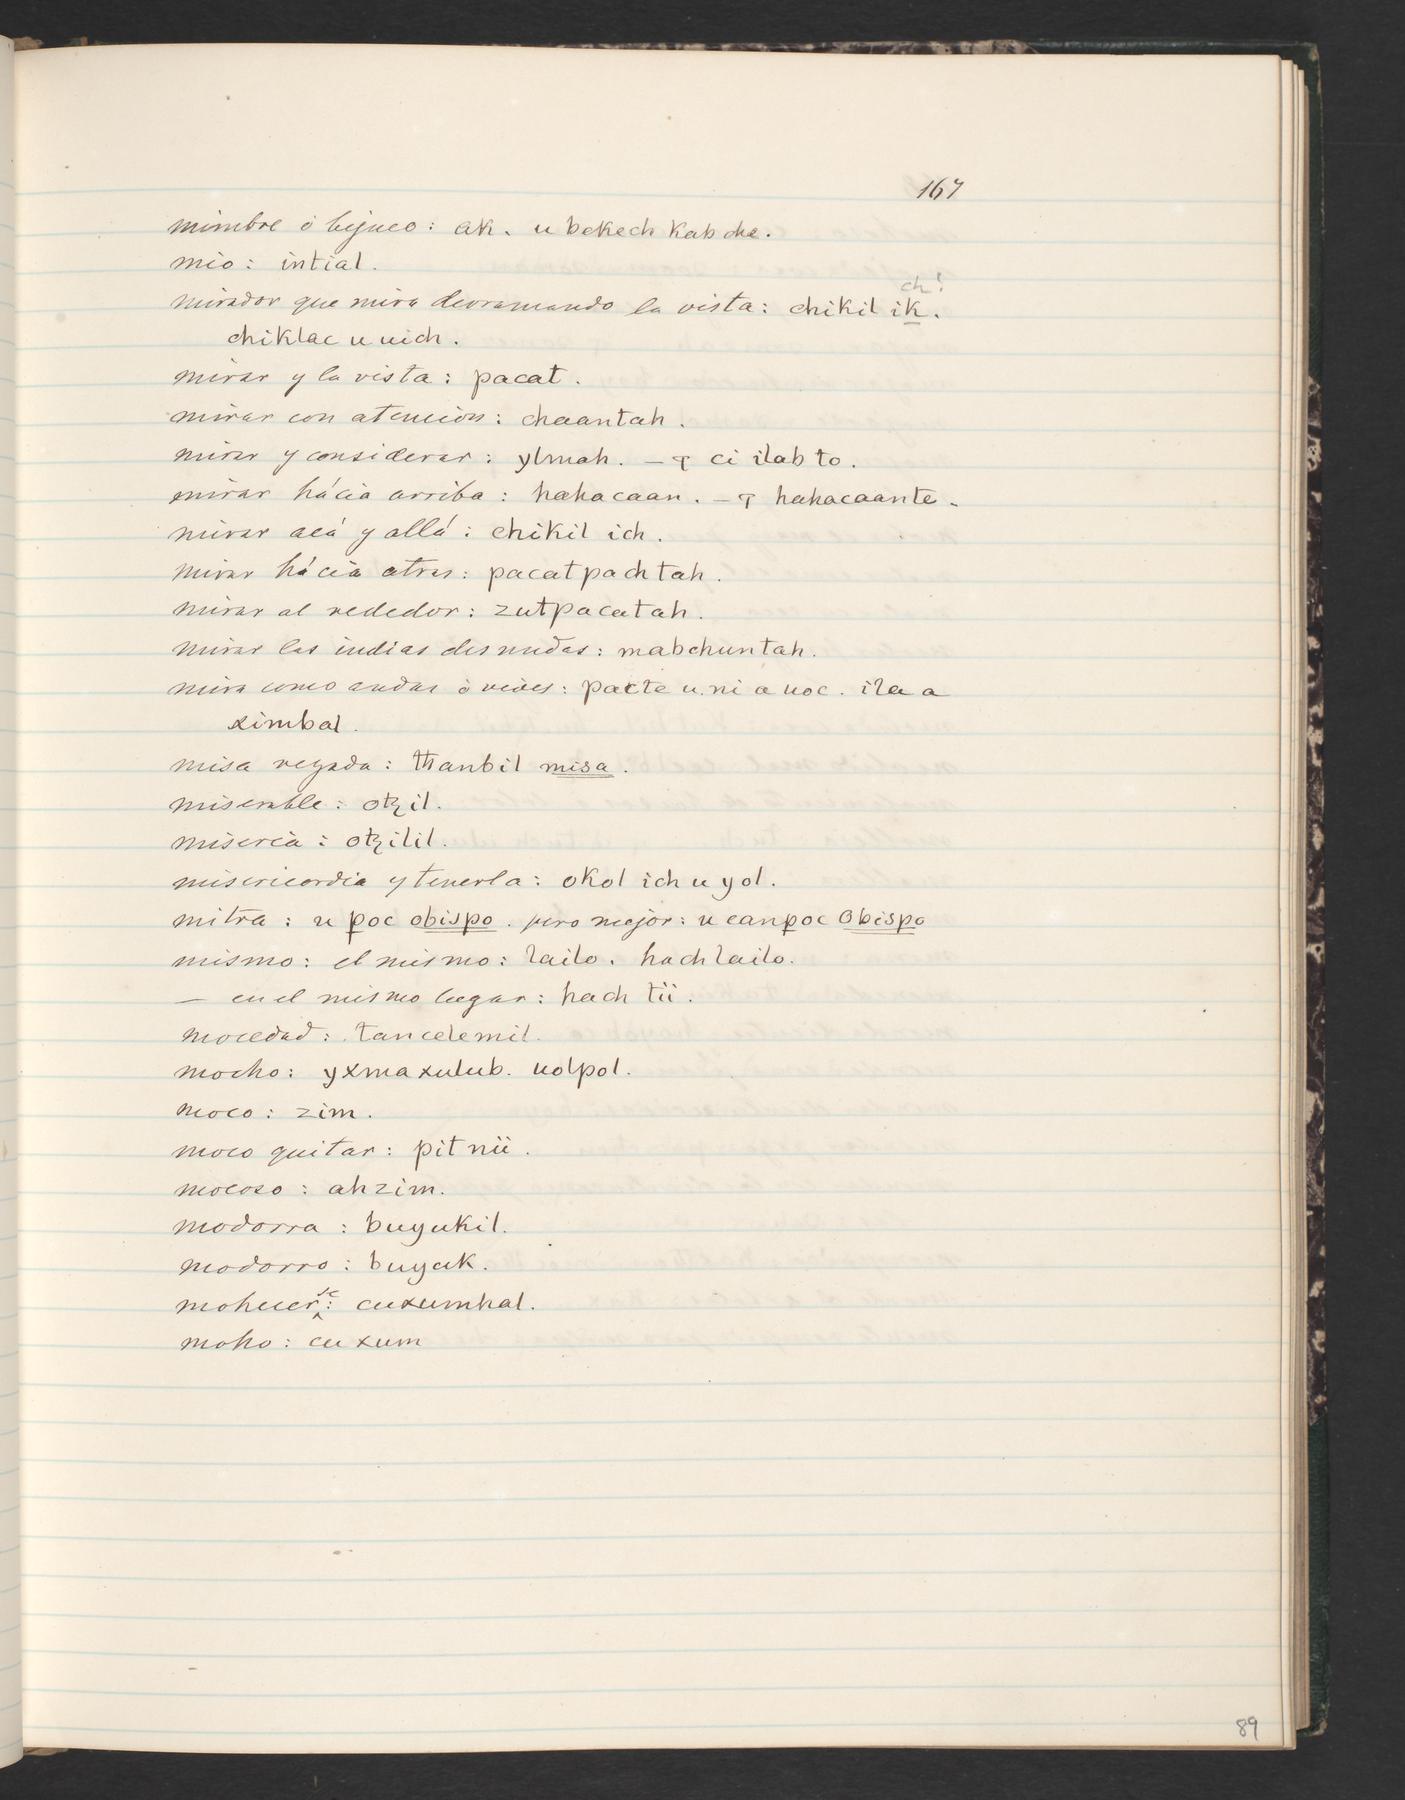 167
mimbre ò bejuco: ak. u bekech kabche.
mio: intial.
ch!
mirador que mira derramando la vista: chikil ik.
chiklac u uich.
mirar y la vista: pacat.
mirar con atencion: chaantah.
mirar y considerar: ylmah. – ꝗ ci ilab to.
mirar hácia arriba: hahacaan. – ꝗ hahacaante.
mirar acá y allá: chikil ich.
mirar hácia atras: pacatpachtah.
mirar al rededor: zutpacatah.
mirar las indias desnudas: mabchuntah.
mira como andas ò vives: pacte u ni a uoc. ila a
ximbal.
misa rezada: ꞇhanbil misa.
miserable: oꜩil.
miseria: oꜩilil.
misericordia y tenerla: okol ich u yol.
mitra: u poc obispo. pero mejor: u canpoc Obispo
mismo: el mismo: lailo. hach lailo.
– en el mismo lugar: hach tii.
mocedad: tancelemil.
mocho: yxma xulub. uolpol.
moco: zim.
moco quitar: pit nii.
mocoso: ah zim.
modorra: buyukil.
modorro: buyuk.
mohecerse: cuxumhal.
moho: cuxum
89